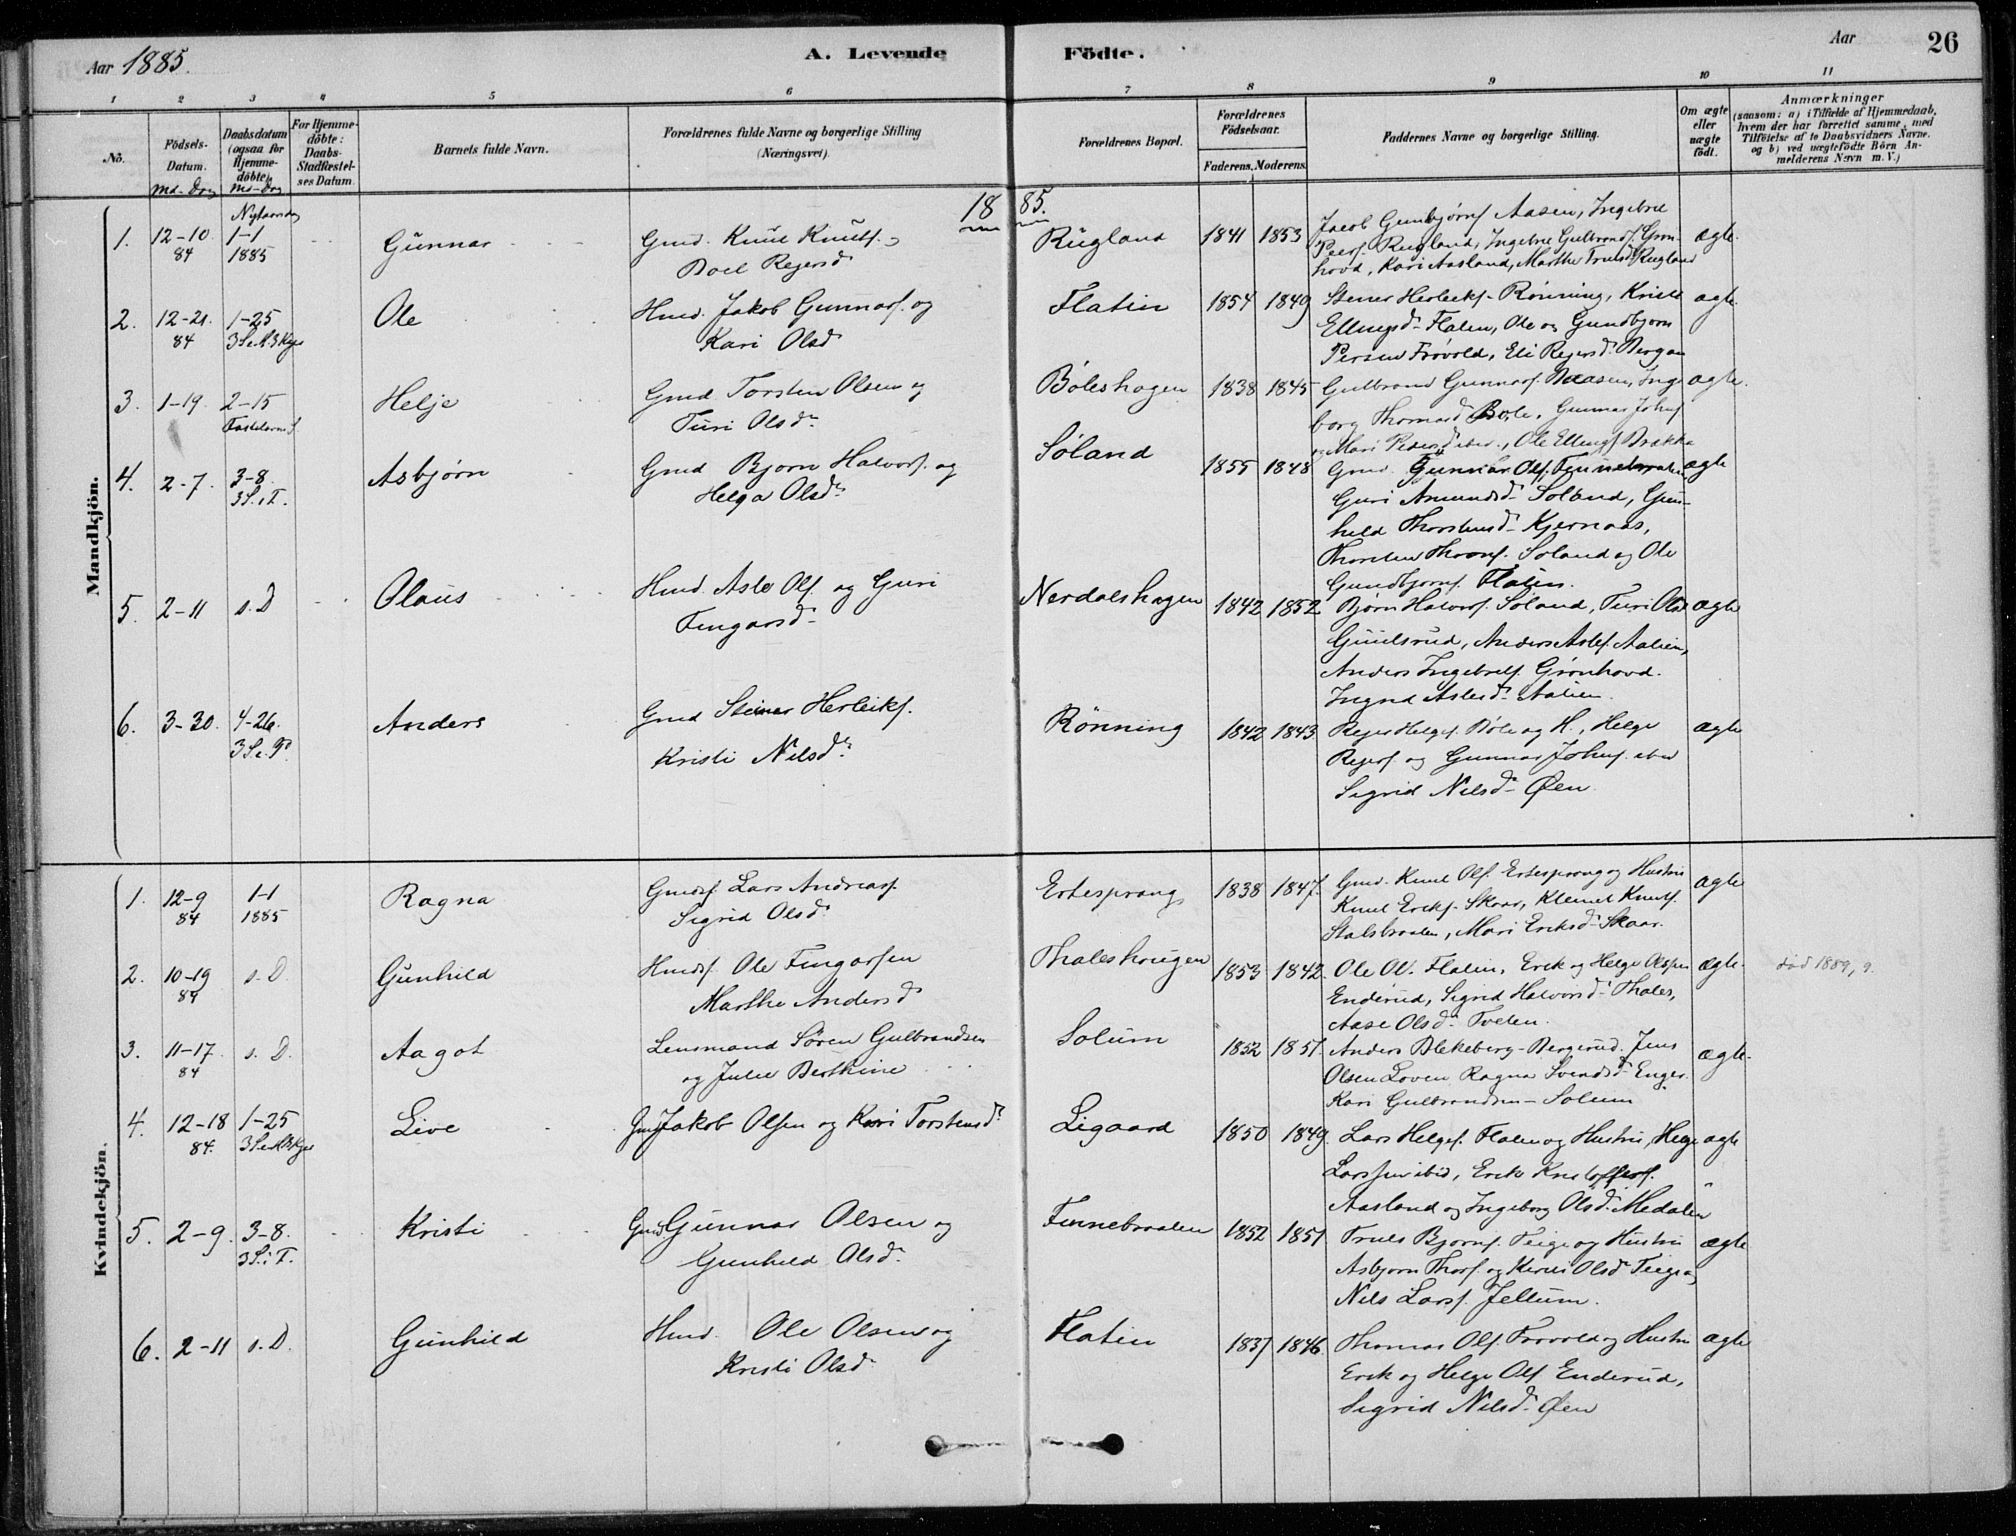 Aar 1885.
A. Levende
Födte.
Aar
26
1
2
3
4
5
6
7
8
9
10
11
No.
Födsels-
Datum.
Md-Dag
Daabsdatum
(ogsaa for
Hjemme-
döbte).
Md-Dag
For Hjemme-
döbte:
Daabs-
Stadfæstel-
ses Datum.
Barnets fulde Navn.
Forældrenes fulde Navne og borgerlige Stilling
(Næringsvei).
Forældrenes Bopæl.
Forældrenes
Födselsaar.
Faderens. Moderens.
Faddernes Navne og borgerlige Stilling.
Om ægte
eller
uægte
födt.
Anmærkninger
(saasom: a) i Tilfælde af Hjemmedaab,
hvem der har forrettet samme, med
Tilföielse af to Daabsvidners Navne.
og b) ved uægtefödte Börn An-
melderens Navn m. V.)
1885.
Mandkjön.
1. 12-10 84 Nytaarsdag 1-1 1885 Gunnar Gmd. Knut Knuts. Boel Reiersd. Rugland 1841 1853 ægte.
Jacob Gunbjørns. Aasen, Ingebret
Peers. Rugland, Ingebret Gulbrands. Grøn-
hovd, Kari Aasland, Marthe Trulsd. Rugland
2. 12-21 84 1-25 Ole Hmd. Jakob Gunnars. og Kari Olsd. Flatin 1854 1849 ægte.
Stener Herleiks. Rønning, Kristi
Ellingsd. Flaten, Ole og Gundbjørn
Persen Frøvold, Eli Reiersd. Bergan
3. 1-19. 2-15 Fastelavns S. Helje Gmd. Torsten Olsen og Turi Olsd. Bøleshagen 1838 1845 ægte.
Gulbrand Gunnars. Aasen, Inge
borg Thomasd. Bøle, Gunnar Johns.
og Mari Pedersd. ibid., Ole Ellings. Brække
4. 2-7. 3-8. 3 S. i F. Asbjørn Gmd Bjørn Halvors. og Helga Olsd. Søland 1855 1848 ægte
Gmd. Gunnar Ols. Finnebraaten
Guri Amundsd. Søland, Gun-
hild Thorstensd. Kjernaas,
Thorsten Thors. Søland og Ole
Gundbjørns. Flaten.
5. 2-11 s. D Olaus Hmd. Asle Ols. og Guri Fingarsd. Nerdalshagen 1842 1852 ægte
Bjørn Halvors. Søland, Turi Olsd
Guulsrud, Anders Asles. Aalien,
Anders Ingebrets. Grønhovd.
Ingrid Aslesd. Aalien.
6. 3-30. 4-26. 3 S. e. P. Anders Gmd Steinar Herleiks. Kristi Nilsd. Rønning 1842 1843 ægte
Reier Helges. Bøle og H., Helge
Reiers. og Gunnar Johns. ibid
Sigrid Nilsd. Øen.
Kvindekjön.
1. 12-9 84 1-1 1885 Ragna Gmds. Lars Andreas. Sigrid Olsd. Ertesprang 1838 1847. ægte
Gmd. Knut Ols. Ertesprang og Hustru
Knut Eriks. Skaar, Klemet Knuts.
Stalsbraaten, Mari Eriksd. Skaar.
2. 10-19 84 s. D. Gunhild Hmds. Ole Fingarsen Marthe Andersd Thaleshaugen 1853 1842. ægte. død 1889, 9.
Ole Ol. Flatin, Erik og Helge Olsen
Enderud, Sigrid Halvorsd. Thales,
Aase Olsd. Tveten.
3. 11-17 84 s. D. Aagot Lensmand Søren Gulbrandsen og Julie Berthine Solum 1852 1851. ægte.
Anders Blekeberg-Bergerud. Jens
Olsen Loven, Ragna Svendsd. Enger
Kari Gulbrandsen - Solum
4. 12-18 84. 1-25 Live Gmd Jakob Olsen og Kari Torstensd. Ligaard 1850 1849. ægte
Lars Helges. Flaten og Hustru, Helge
Larssen ibid, Erik Kristoffers.
Aasland og Ingeborg Olsd. Medalen
5. 2-9. 3-8. 3 S. i F. Kristi Gmd Gunnar Olsen og Gunhild Olsd. Finnebraaten 1852 1851 ægte
Truls Bjørns. Teige og Hustru
Asbjørn Thors. og Kersti Olsd. Teige og
Nils Lars. Jellum.
6. 2-11 s. D. Gunhild Hmd. Ole Olsen og Kristi Olsd. Flatin 1837 1846. ægte
Thomas Ols. Frøvold og Hustru
Erik og Helge Ols. Enderud,
Sigrid Nilsd. Øen